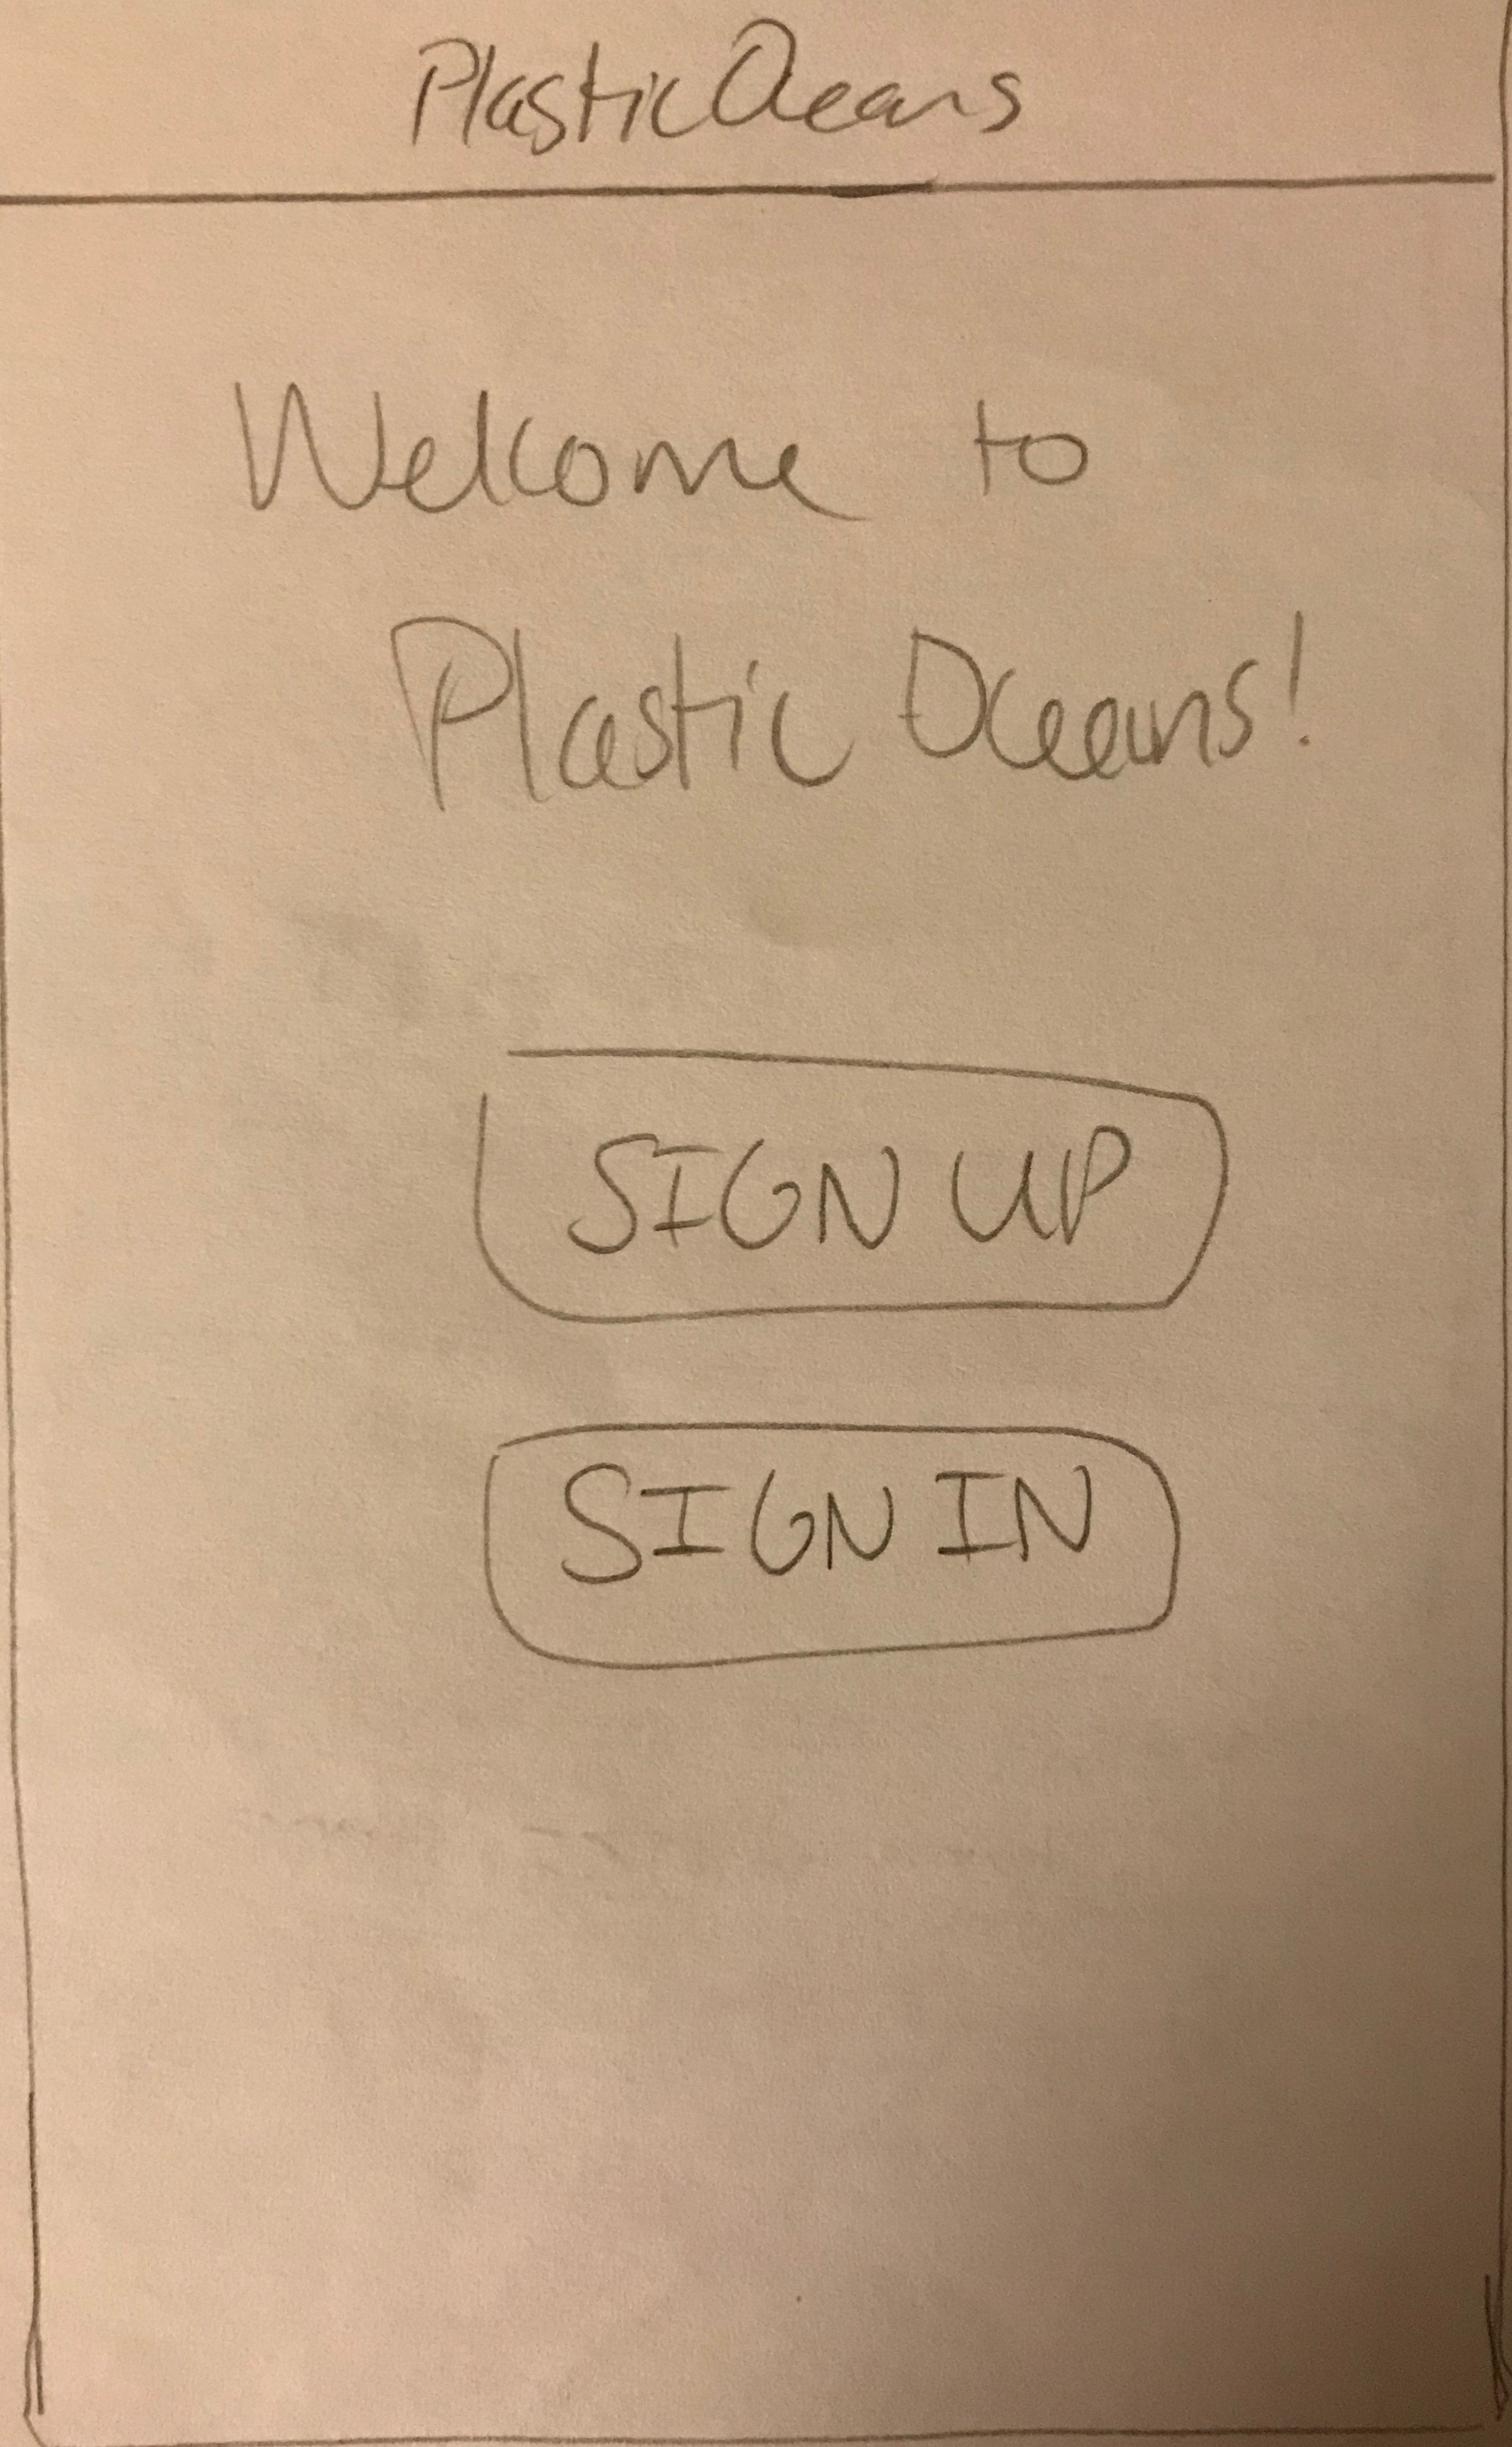 Plastic Oceans
Welcome to
Plastic Oceans!
SIGN UP
SIGN IN